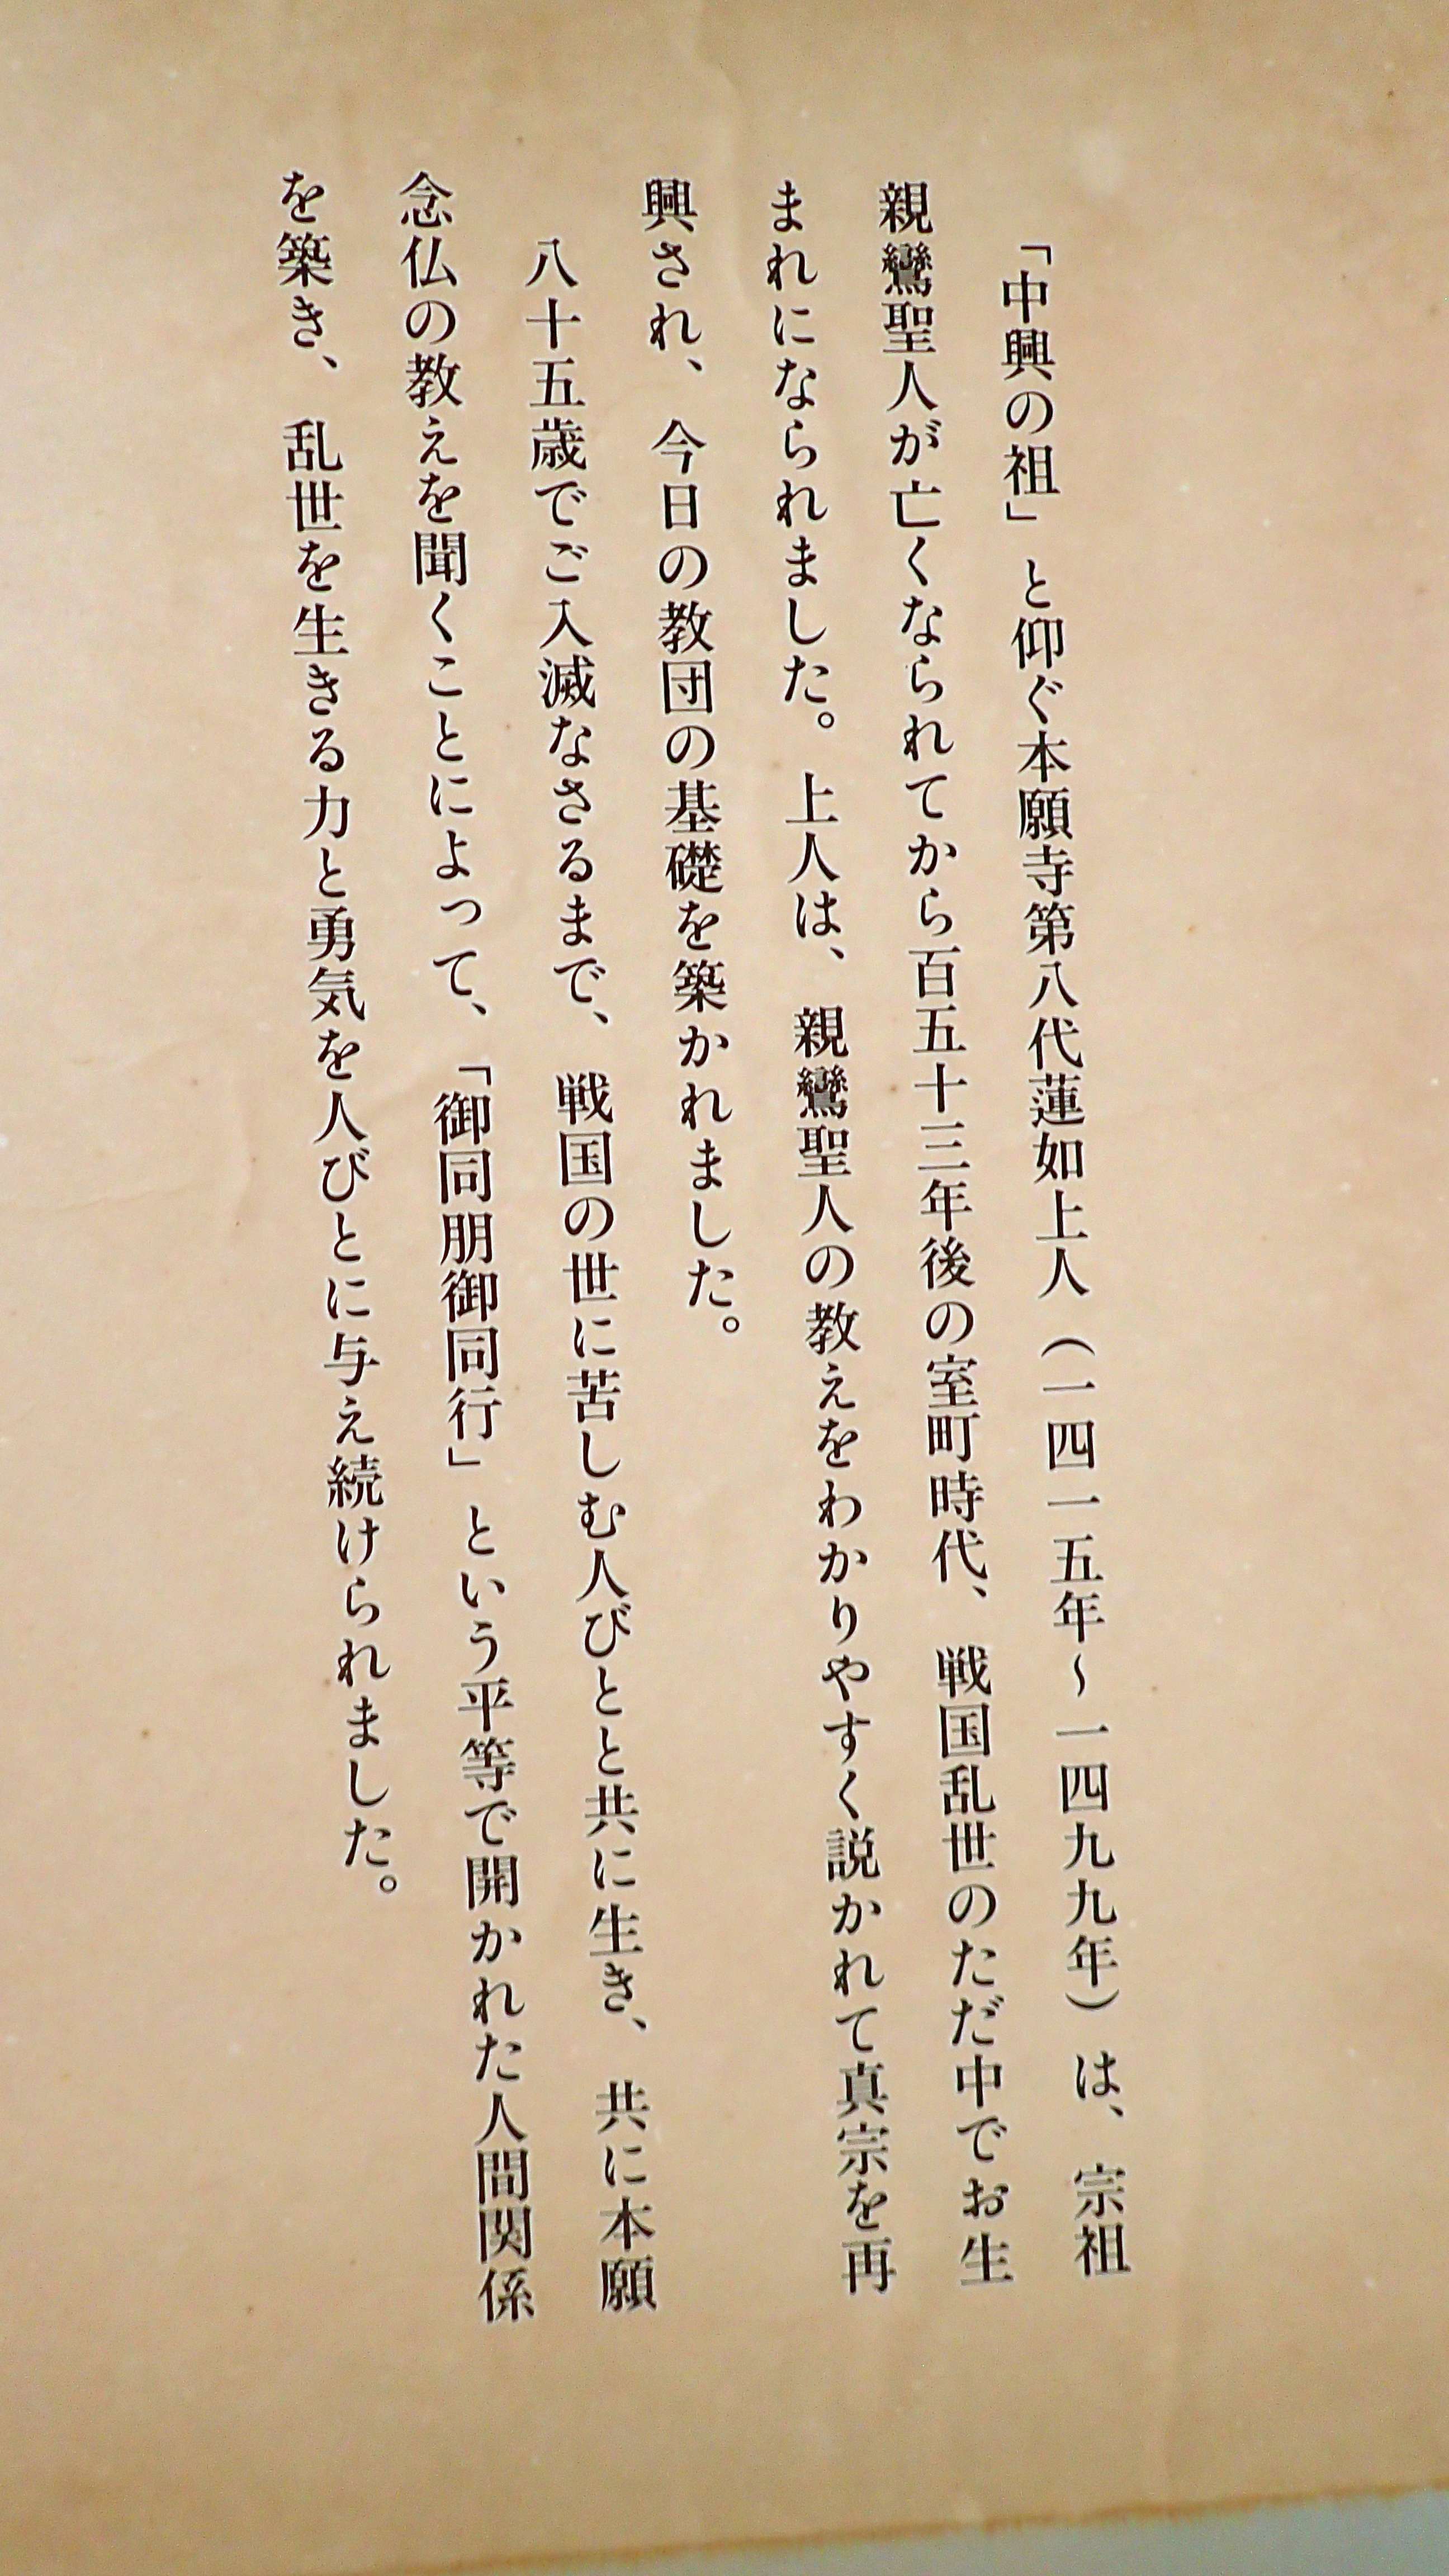 「中興の祖」と仰ぐ本願寺第八代蓮如上人（一四一五年～一四九九年）は、宗祖
親鸞聖人が亡くなられてから百五十三年後の室町時代、戦国乱世のただ中でお生
まれになられました。上人は、親鸞聖人の教えをわかりやすく説かれて真宗を再
興され、今日の教団の基礎を築かれました。
八十五歳でご入滅なさるまで、戦国の世に苦しむ人びとと共に生き、共に本願
念仏の教えを聞くことによって、「御同朋御同行」という平等で開かれた人間関係
を築き、乱世を生きる力と勇気を人びとに与え続けられました。